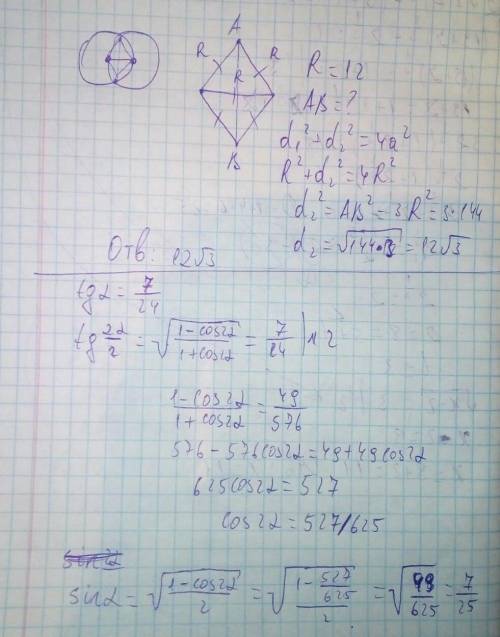 A
R R
R
B
R = 12
AB = ?
d₁² + d₂² = 4a²
R² + d₂² = 4R²
d₂² = AB² = 3R² = 3·144
d₂ = √(144·3) = 12√3
Отв: 12√3
tgα = 7/24
tg 2α/2 = √((1-cos2α)/(1+cos2α)) = 7/24 |^2
(1-cos2α)/(1+cos2α) = 49/576
576 - 576cos2α = 49 + 49cos2α
625cos2α = 527
cos2α = 527/625
sinα = √((1-cos2α)/2) = √((1 - 527/625)/2) = √(49/625) = 7/25